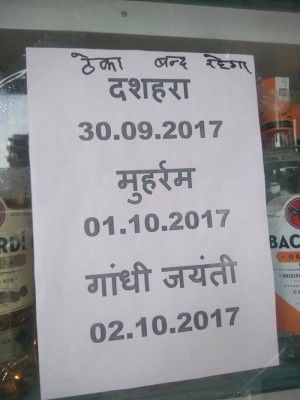 ठेका बन्द रहेगा
दशहरा
30.09.2017
मुहर्रम
01.10.2017
गांधी जयंती
02.10.2017
RDI
BAC